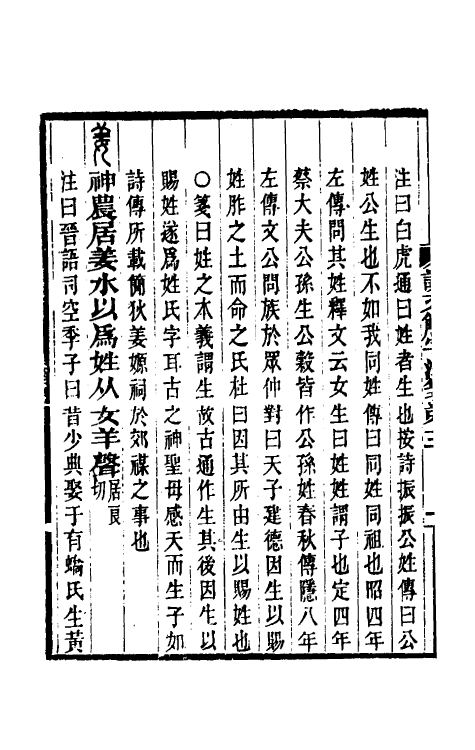 注曰白虎通曰姓者生也按詩振振公姓傳曰公
姓公生也不如我同姓傳曰同姓同祖也昭四年
左傳問其姓釋文云女生曰姓姓謂子也定四年
蔡大夫公孫生公穀皆作公孫姓春秋傳隱八年
左傳文公問族於眾仲對曰天子建德因生以賜
姓胙之土而命之氏杜曰因其所由生以賜姓也
○箋曰姓之本義謂生故古通作生其後因生以
賜姓遂爲姓氏字耳古之神聖母感天而生子如
詩傳所載簡狄姜嫄祠於郊禖之事也
姜 神農居姜水以爲姓从女羊聲居良切
注曰晉語司空季子曰昔少典娶于有蟜氏生黃